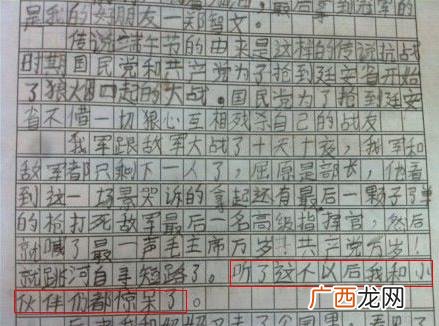 是我的好朋友一郑智文。
传说端午节的由来是这样的传说抗战
时期国民党和共产党为了抢到延安省开始
了狼烟四起的大战。国民党为了抢到延安
省不惜一切狠心互相残杀自己的战友
我军跟敌军大战了十天十夜，我军和
敌军都只剩下一人了，屈原是部长，他看
到这一场景哭诉的拿起还有最后一颗子弹
的枪打死敌军最后一名高级指挥官，然后
就喊了最一声毛主席万岁！共产党万岁！
就跳河自寻短路了。听了这个以后我和小
伙伴们都惊呆了。
广西龙网